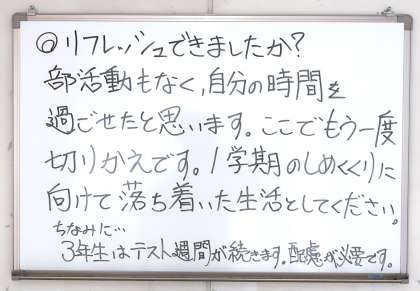 ◎リフレッシュできましたか?
部活動もなく,自分の時間を
過ごせたと思います。ここでもう一度
切りかえです。1学期のしめくくりに
向けて落ち着いた生活としてください。
ちなみに…
3年生はテスト週間が続きます。配慮が必要です。